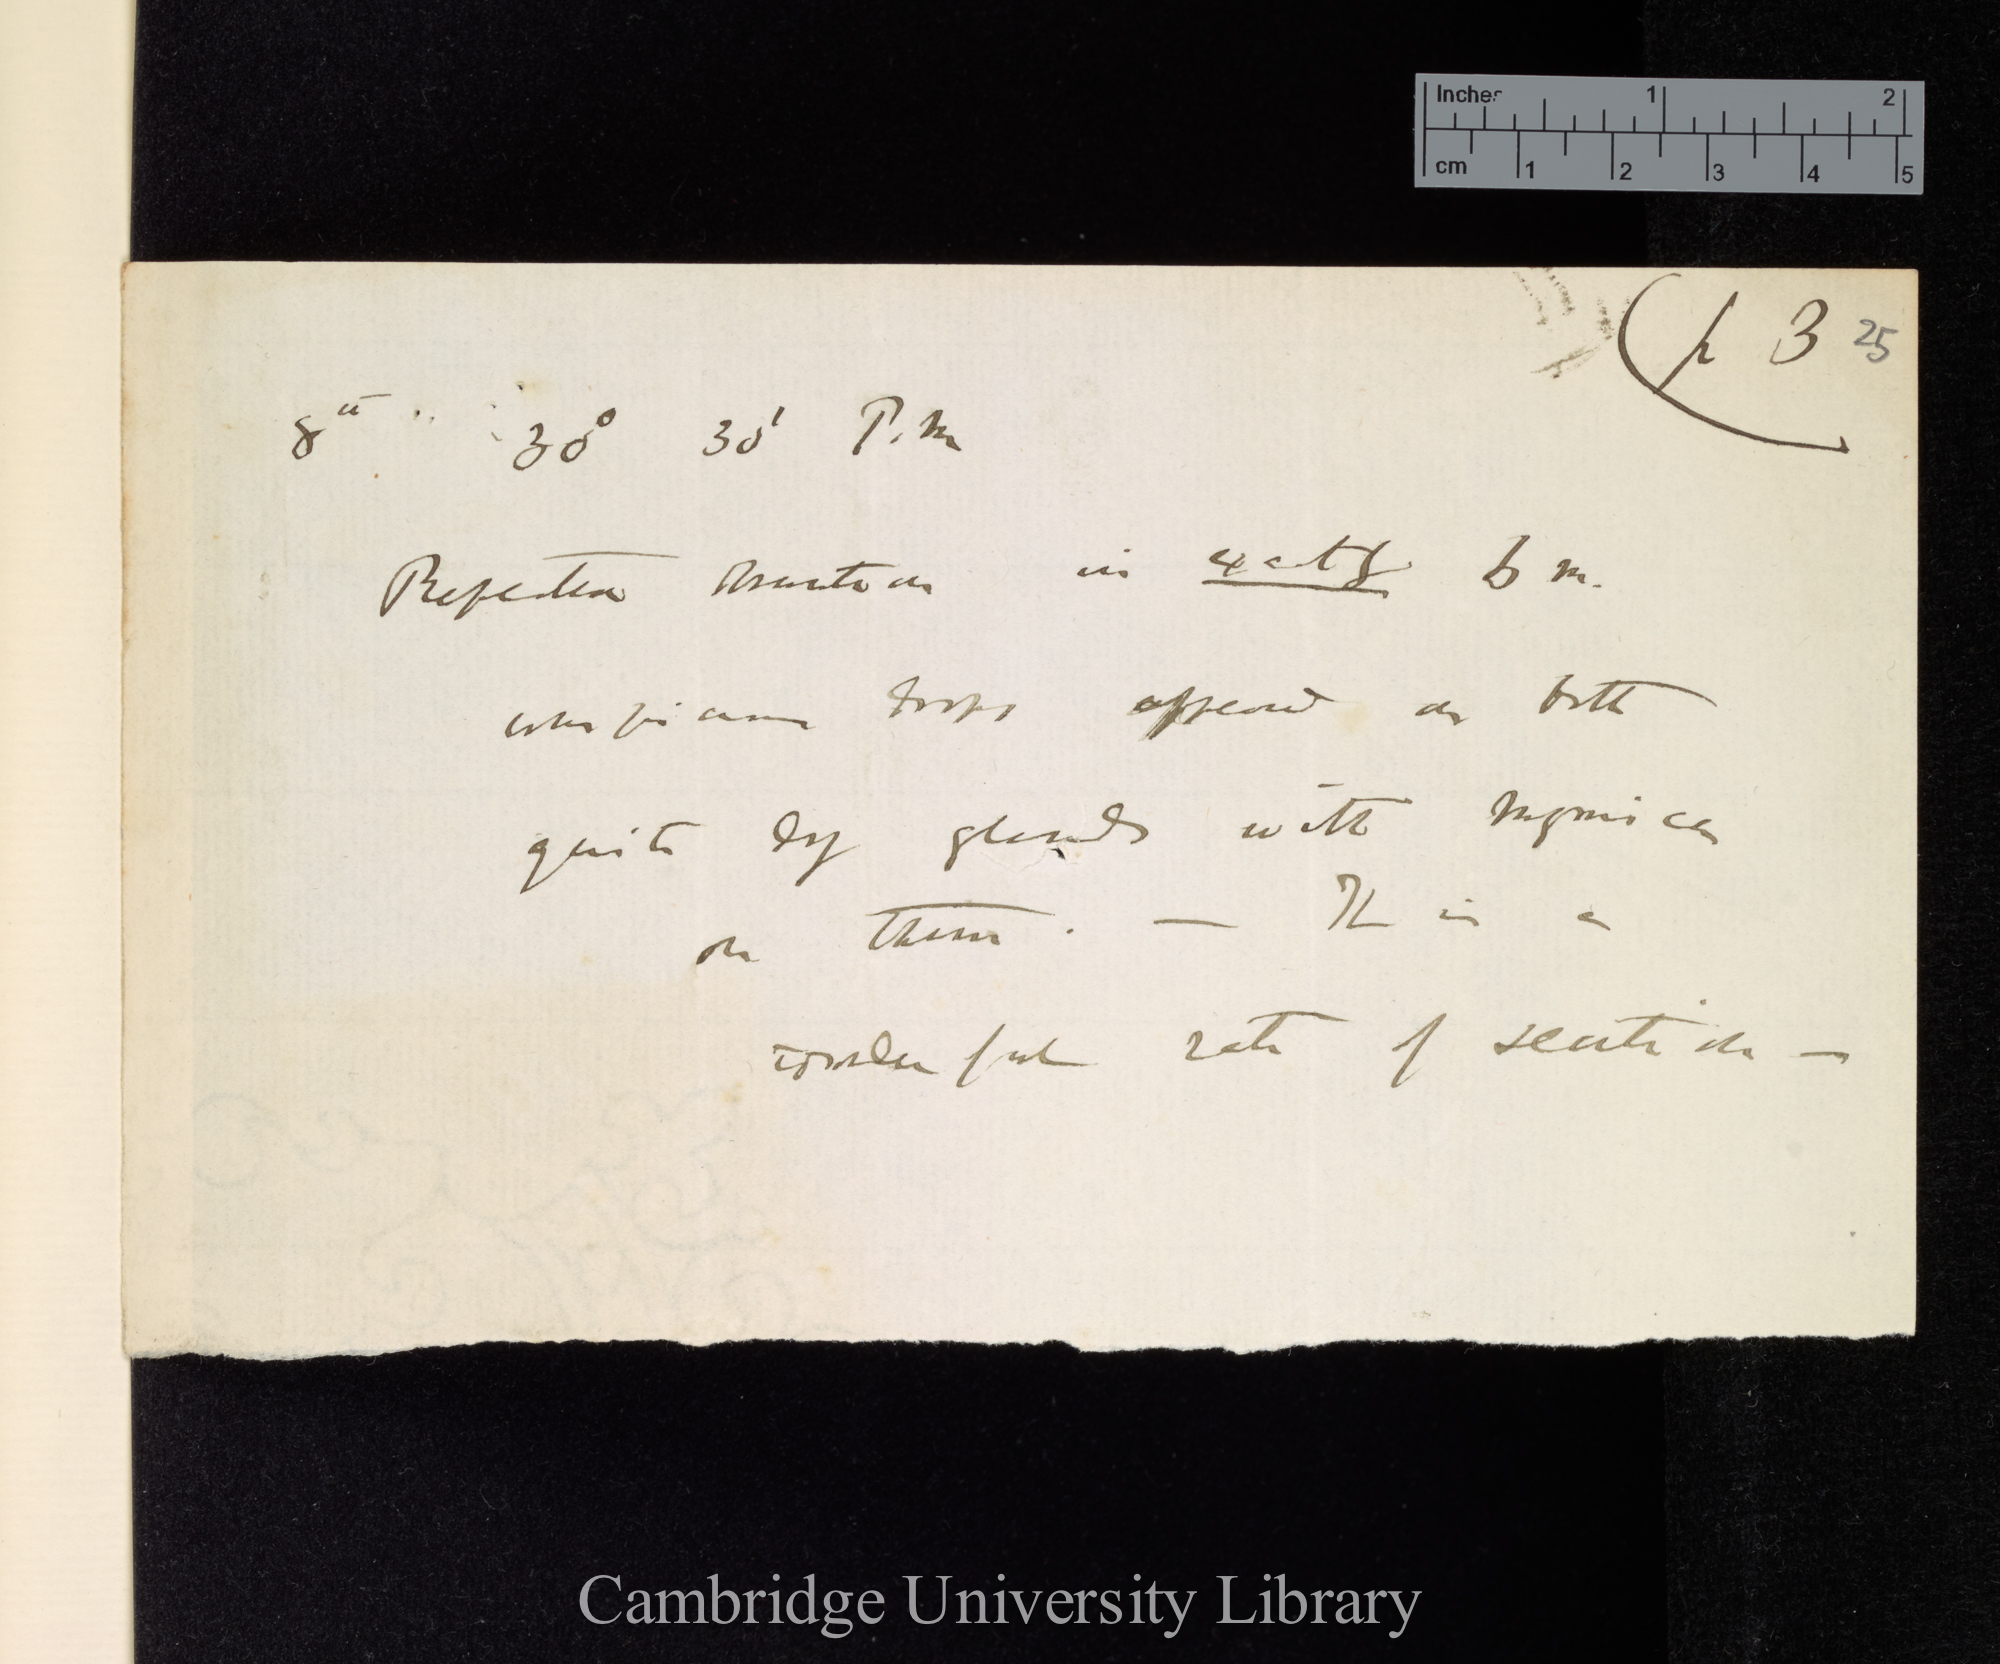 Inches 1 2
cm 1 2 3 4 5
(p 3 25
8th 3° 30' P.m
Repeated observation in exactly 6 m.
conspicuous drops appeared on both
quite dry glands with Myrmica
on them. — It is a
wonderful rate of secretion —
Cambridge University Library